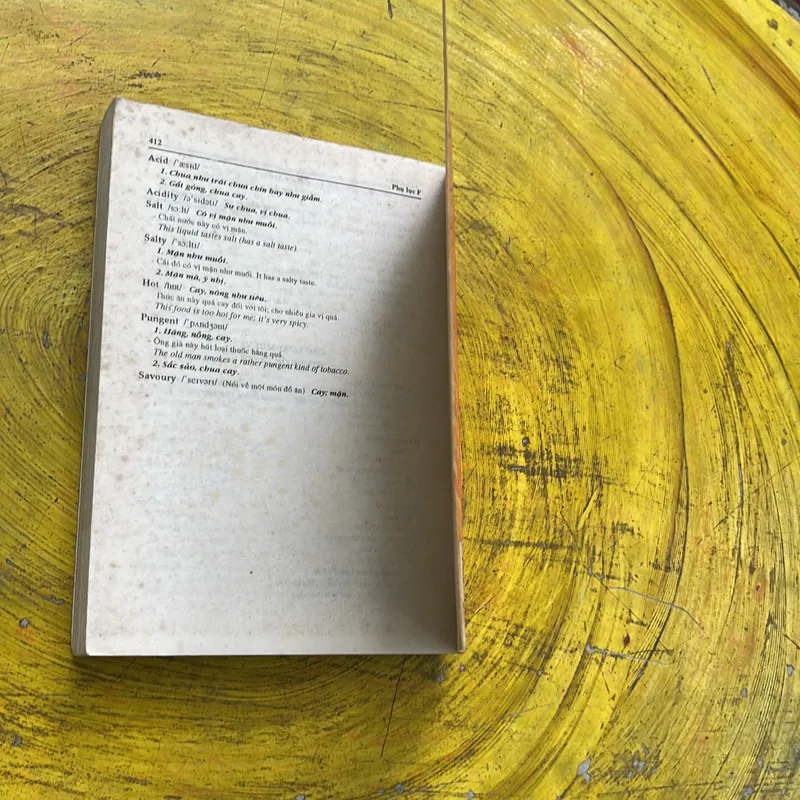 412
Phụ lục F
Acid /'æsɪd/
1. Chua như trái chua chín hay như giấm.
2. Gắt gỏng, chua cay.
Acidity /ə'sɪdəti/ Sự chua, vị chua.
Salt /sɔ:lt/ Có vị mặn như muối.
- Chất nước này có vị mặn.
This liquid tastes salt (has a salt taste).
Salty /'sɔ:ltɪ/
1. Mặn như muối.
- Cái đó có vị mặn như muối. It has a salty taste.
2. Mặn mà, ý nhị.
Hot /hɒt/ Cay, nóng như tiêu.
- Thức ăn này quá cay đối với tôi; cho nhiều gia vị quá.
This food is too hot for me; it's very spicy.
Pungent /'pʌndʒənt/
1. Hăng, nồng, cay.
- Ông già này hút loại thuốc hăng quá.
The old man smokes a rather pungent kind of tobacco.
2. Sắc sảo, chua cay.
Savoury /'seɪvərɪ/ (Nói về một món đồ ăn) Cay; mặn.